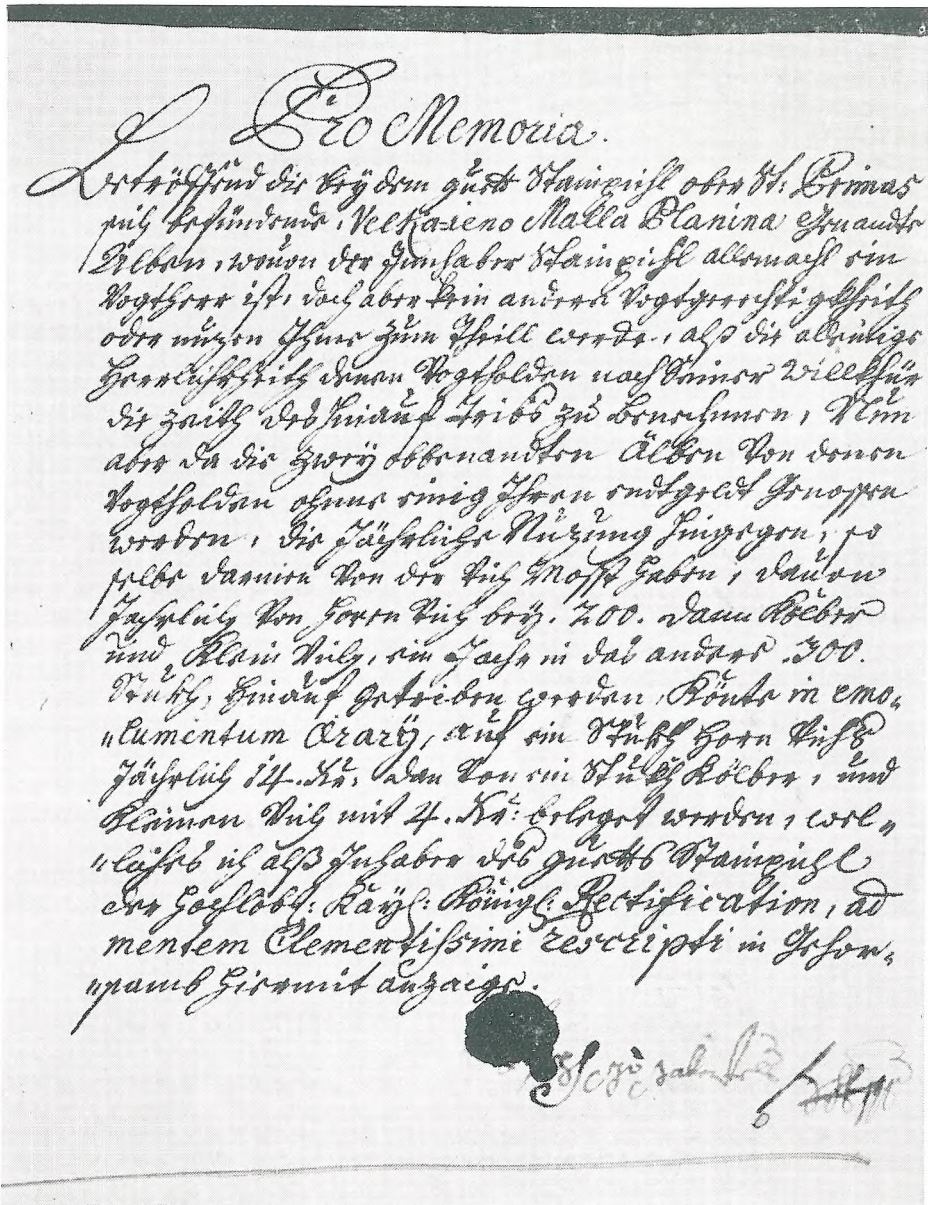 Pro Memoria.
Betröffend die bey dem guett Stainpichl ober St: Primas
sich befündende, Velka ieno Malla Planina Genandte
Alben, wouon der Innhaber Stainpichl allemahl ein
Vogtherr ist, doch aber kein andere Vogtgerechtigkheith
oder nuzen Ihme zum Theill werde, alß die alleinige
Herrlichkheith denen Vogtholden nach Seiner Willkhür
die zeith des hinauf tribs zu benehmen, Nun
aber da die zwey obbenandten Älben von denen
Vogtholden ohne einig Ihren endtgeldt Genossen
werden, die Jährliche Nuzung hingegen, so
selbe darmien von der Vich haben, dauon
Jährlich von Horn Vich bey. 200. dann Kölber
und Klein Vich, ein Jahr in das andere .300.
Stukh, hinauf getriben werden, Könte in emo-
lumentum Ærary, auf ein Stukh Horn Vichs
Jährlich 14. Kr: dan von ein Stukh Kölber, und
Kleinen Vich mit 4. Kr: beleget werden, wel-
liches ich alß Inhaber des guetts Stainpichl
der Hochlöbl: Kayl: Königl: Rectification, ad
mentem Clementissimi rescripti in Gehor-
samb hiermit anzaige.